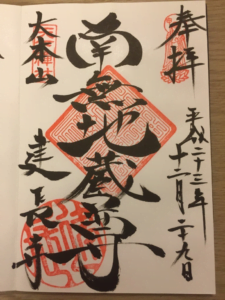 奉拝
平成二十三年
十二月二十九日
南無地蔵尊
大本山
建長寺